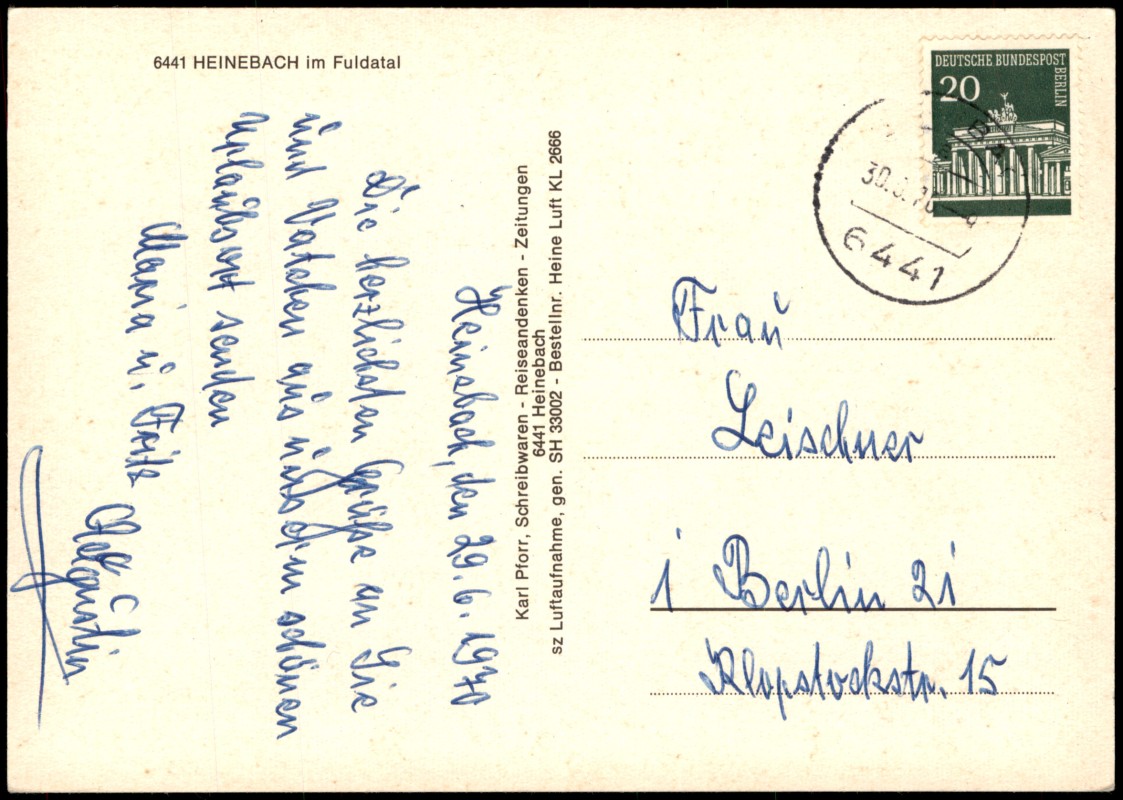 6441 HEINEBACH im Fuldatal
Heinebach, den 29. 6. 1970
Die herzlichsten Grüße an Sie
und Vatchen aus unserem schönen
Uplaubsort senden
Maria u. Fritz
Karl Pforr, Schreibwaren - Reiseandenken - Zeitungen
6441 Heinebach
sz Luftaufnahme, gen. SH 33002 - Bestellnr. Heine Luft KL 2666
DEUTSCHE BUNDESPOST
BERLIN
20
30.6.70
6441
Frau
Leischner
1 Berlin 21
Klopstockstr. 15